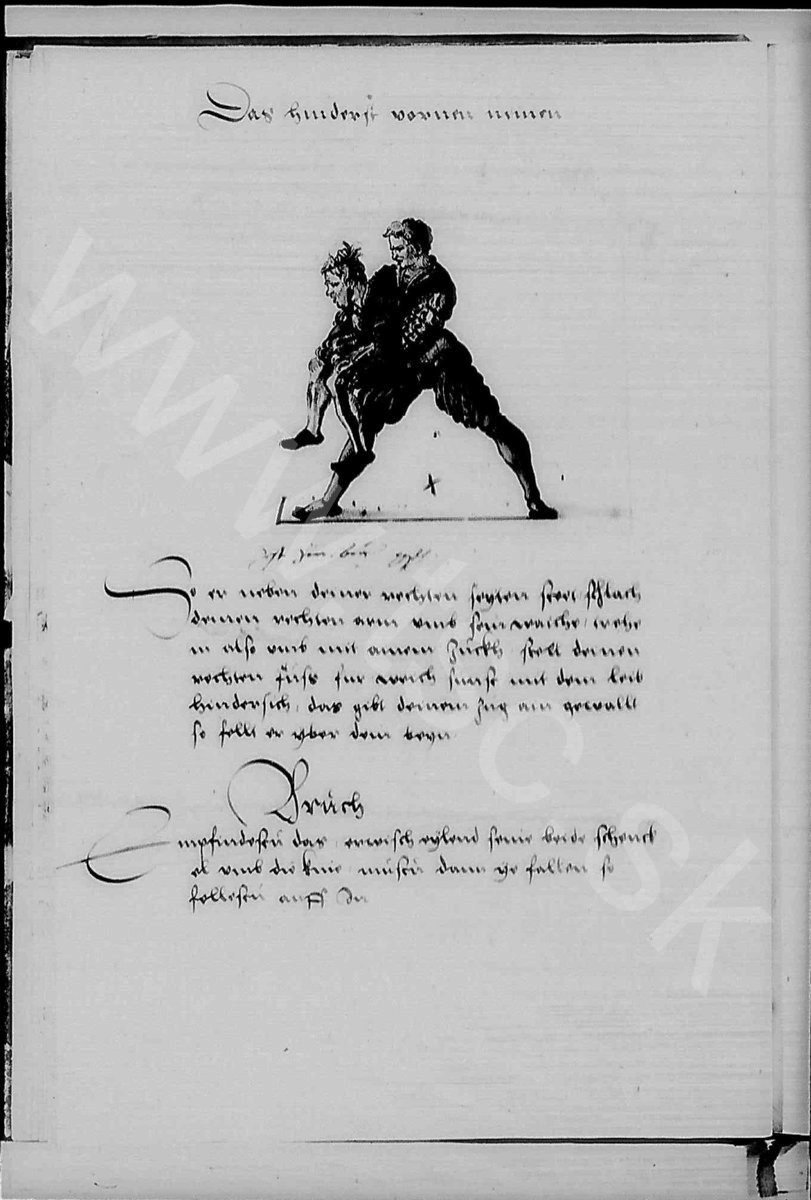 Das hinderst vornen nimen
So er neben deiner rechten seyten steet schlach
deinen rechten arm umb sein waiche, trehe
in also umb mit ainem zuckh stelt deinen
rechten fuss für weich sunst mit dem leib
hindersich, das gibt deinem zug ain gewallt
so fellt er yber dem beyn
Brüch
Empfindestu das, erwisch eylend seine beide schenck
el umb die knie, mustu dann ye fallen so
fellestu auff In
www.iisc.sk